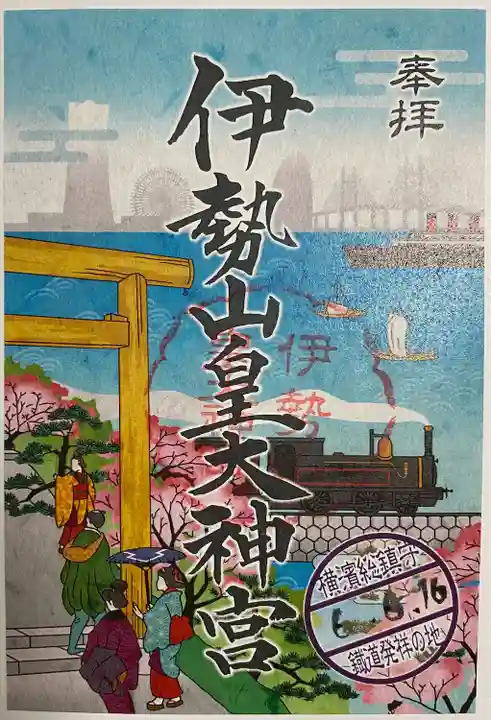 奉拝
伊勢山皇大神宮
伊勢
横濱総鎮守
6.6.16
鐵道発祥の地